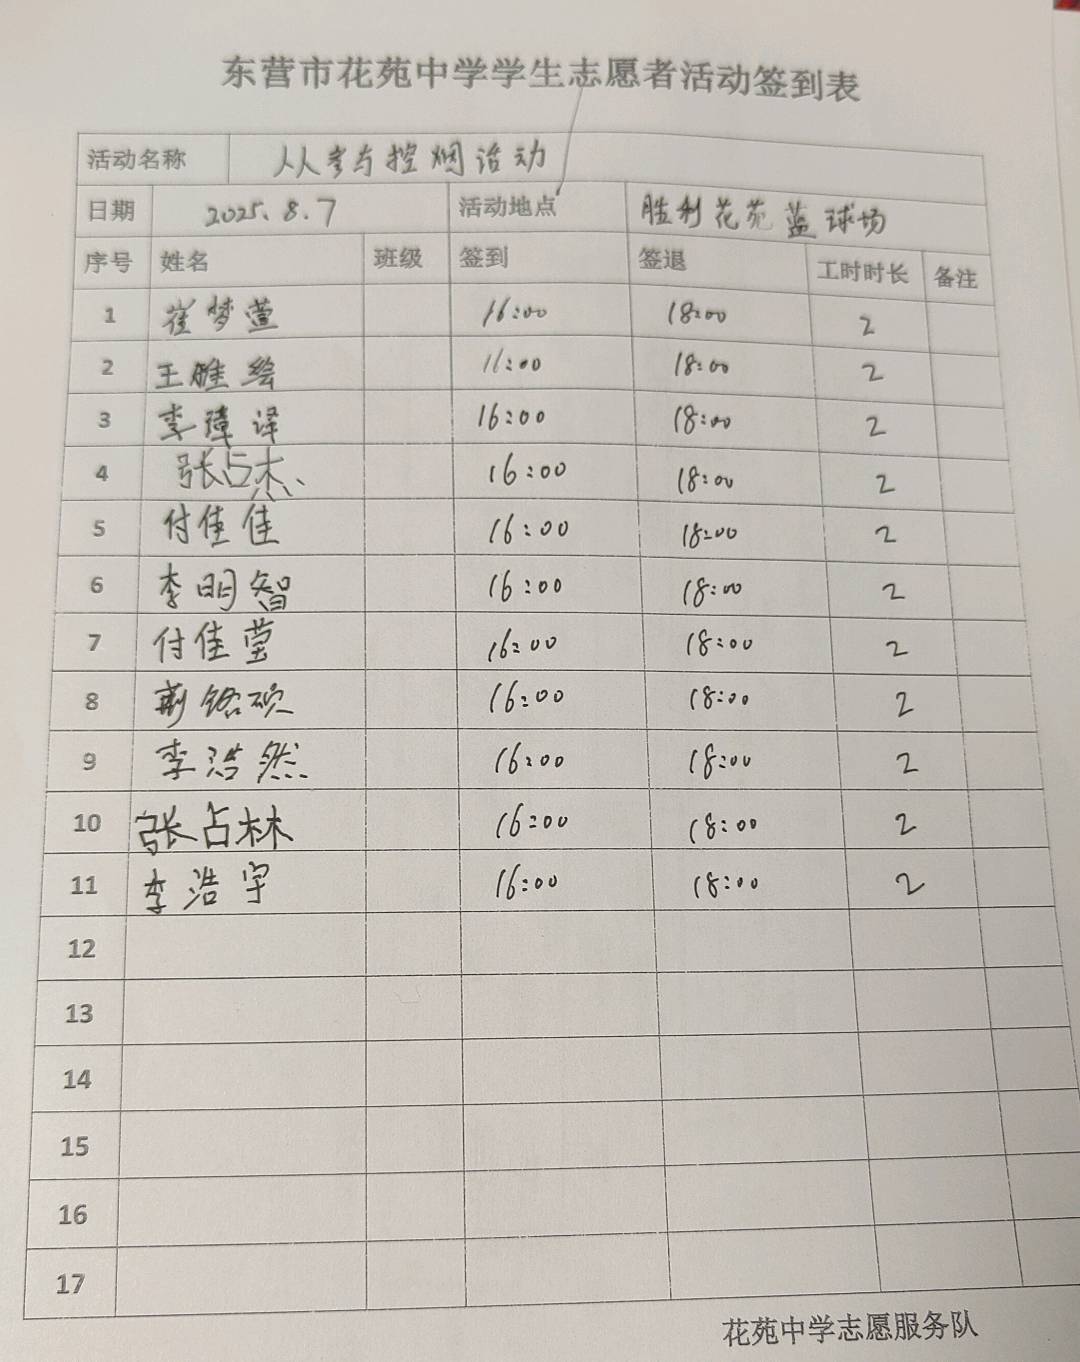 东营市花苑中学学生志愿者活动签到表
活动名称 人人参与控烟活动
日期 2025.8.7 活动地点 胜利花苑蓝球场
序号 姓名 班级 签到 签退 工时时长 备注
1 崔梦萱 16:00 18:00 2
2 王雅绘 16:00 18:00 2
3 李璋译 16:00 18:00 2
4 张占杰 16:00 18:00 2
5 付佳佳 16:00 18:00 2
6 李明智 16:00 18:00 2
7 付佳莹 16:00 18:00 2
8 荆铭硕 16:00 18:00 2
9 李浩然 16:00 18:00 2
10 张占林 16:00 18:00 2
11 李浩宇 16:00 18:00 2
12
13
14
15
16
17
花苑中学志愿服务队